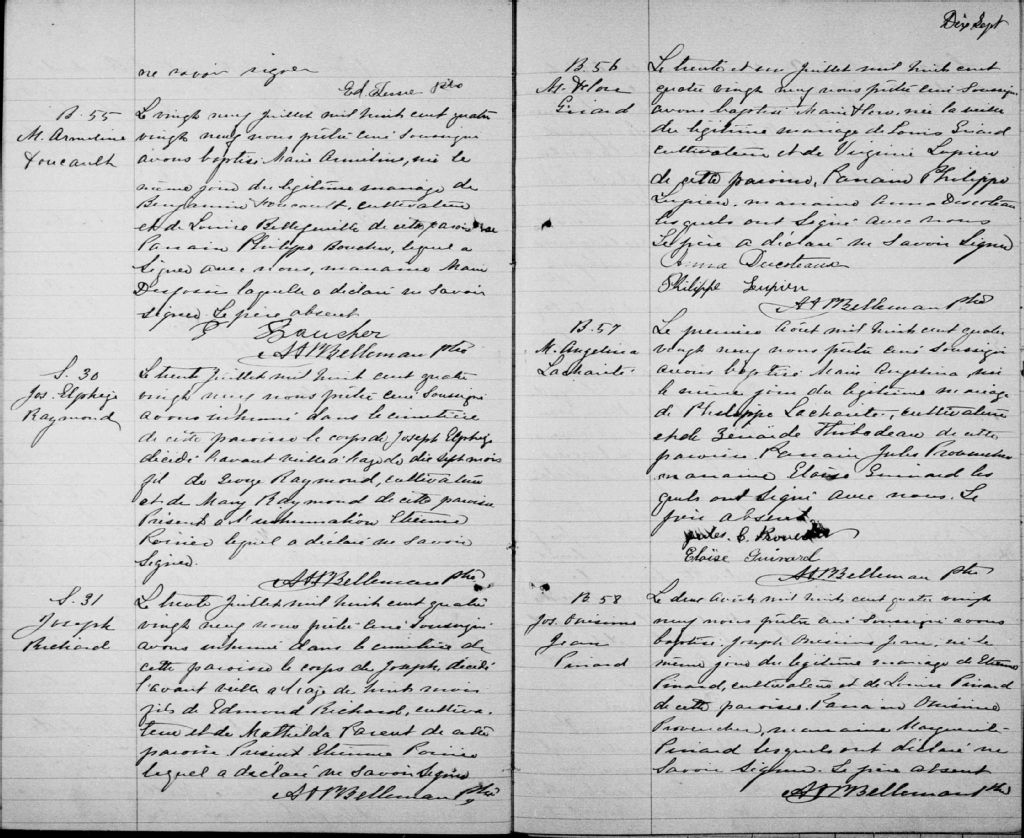 ne savoir signer
Ptre
B. 55
M. Armeline
Foucault
Le vingt neuf Juillet mil huit cent quatre
vingt neuf nous prêtre curé Soussigné
avons baptisé Marie Armeline, née le
même jour du légitime mariage de
Benjamin Foucault, cultivateur
et de Louise Bellefeuille de cette paroisse
Parrain Philippe Boucher, lequel a
Signer avec nous, marraine Marie
laquelle a déclaré ne savoir
signer. Le père absent
P Baucher
A H Belleman Ptre
S. 30
Jos. Elphège
Raymond
Le trente Juillet mil huit cent quatre
vingt neuf nous prêtre curé Soussigné
avons inhumé dans le cimetière
de cette paroisse le corps de Joseph Elphège
décédé l'avant veille à l'age de dix sept mois
fil de George Raymond, cultivateur
et de Mary Raymond de cette paroisse
Présent à l'inhumation Etienne
Poirier lequel a déclaré ne savoir
Signer.
A H Belleman Ptre
S. 31
Joseph
Richard
Le trente Juillet mil huit cent quatre
vingt neuf nous prêtre curé Soussigné
avons inhumé dans le cimetière de
cette paroisse le corps de Joseph décédé
l'avant veille a l'age de huit mois
fils de Edmond Richard, cultiva-
teur et de Mathilda Parent de cette
paroisse Présent Etienne Poirier
lequel a déclaré ne savoir Signer
A H Belleman Ptre
Dix Sept
B. 56
M. Flore
Girard
Le trente et un Juillet mil huit cent
quatre vingt neuf nous prêtre curé Soussigné
avons baptisé Marie Flore, née la veille
du légitime mariage de Louis Girard
cultivateur et de Virginie Lupien
de cette paroisse, Parrain Philippe
Lupien, marraine Anna Ducoteau
lesquels ont Signé avec nous
Le père a déclaré ne savoir Signer
Anna Ducoteaux
Philippe Lupien
A H Belleman Ptre
B. 57
M. Angelina
Lacharité
Le premier Août mil huit cent quatre
vingt neuf nous prêtre curé Soussigné
avons baptisé Marie Angelina née
le même jour du légitime mariage
de Philippe Lacharité, cultivateur
et de Zénaïde Thibodeau de cette
paroisse Parrain Jules Provencher
marraine Eloïse Guinard les
quels ont Signé avec nous. Le
père absent
Jules. C.
Eloïse Guinard
A H Belleman Ptre
B. 58
Jos. Onésime
Jean
Pinard
Le deux Août mil huit cent quatre vingt
neuf nous prêtre curé Soussigné avons
baptisé Joseph Onésime Jean, né le
même jour du légitime mariage de Etienne
Pinard, cultivateur et de Louise Pinard
de cette paroisse. Parrain Onésime
Provencher, marraine Marguerite
Pinard lesquels ont déclaré ne
savoir Signer. Le père absent
A H Belleman Ptre